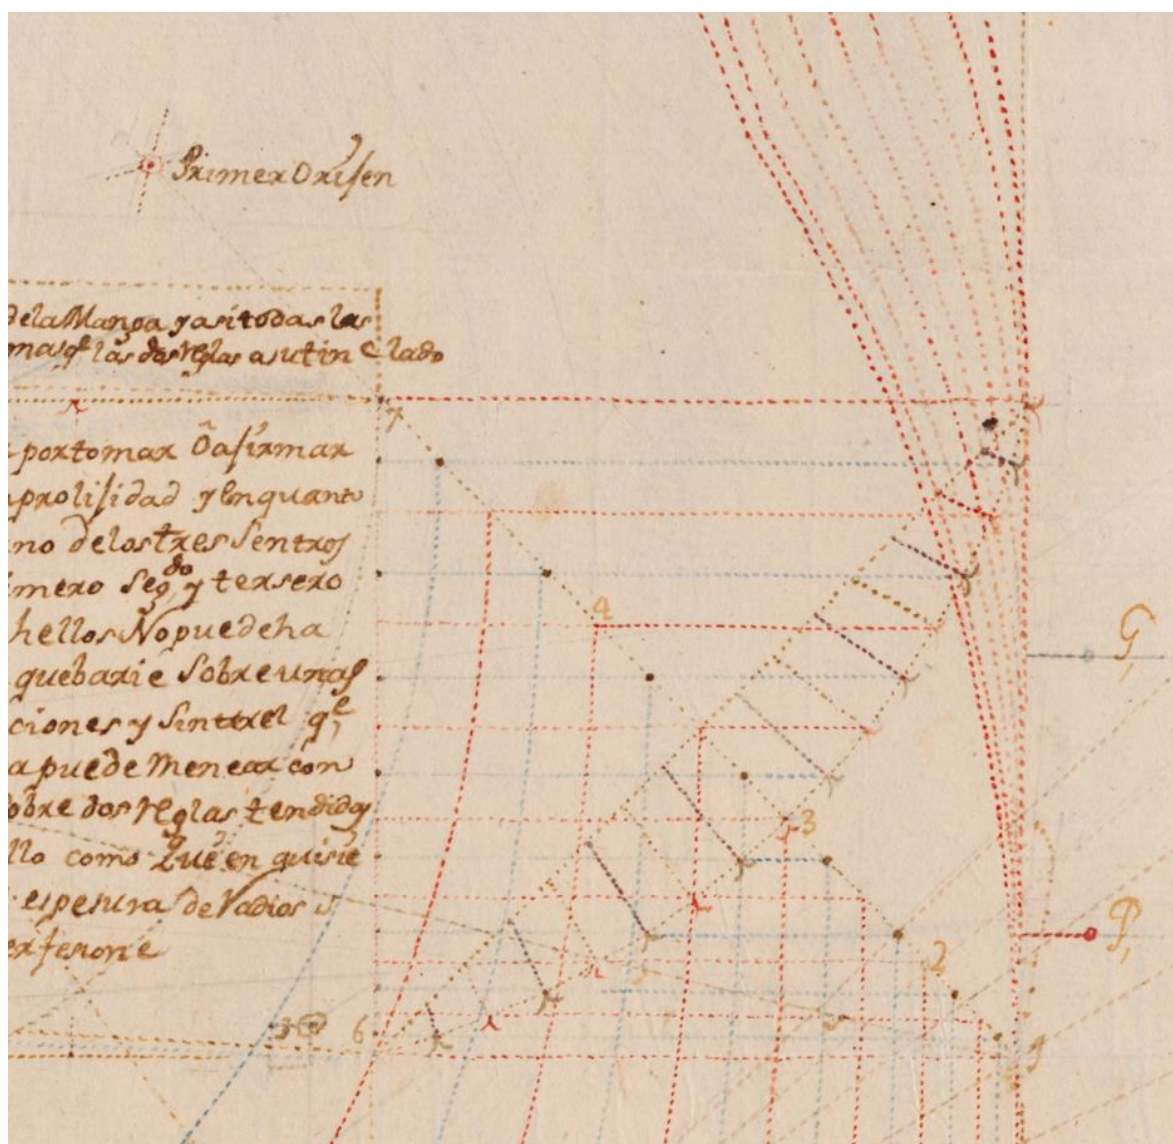 Primer Orisen
de la Manga y asi todas las
mas q.e las dos Reglas a utin lado
por tomar O afirmar
prolisidad y en quanto
no de los tres Sentros
imero Seg.do y tersero
hellos No puede ha
que barie Sobre unas
ciones y Sinttrel q.e
a puede Menear con
obre dos reglas tendidas
llo como Que en quisie
espesura de Vadios
7
4
3
2
3
6
G,
P,